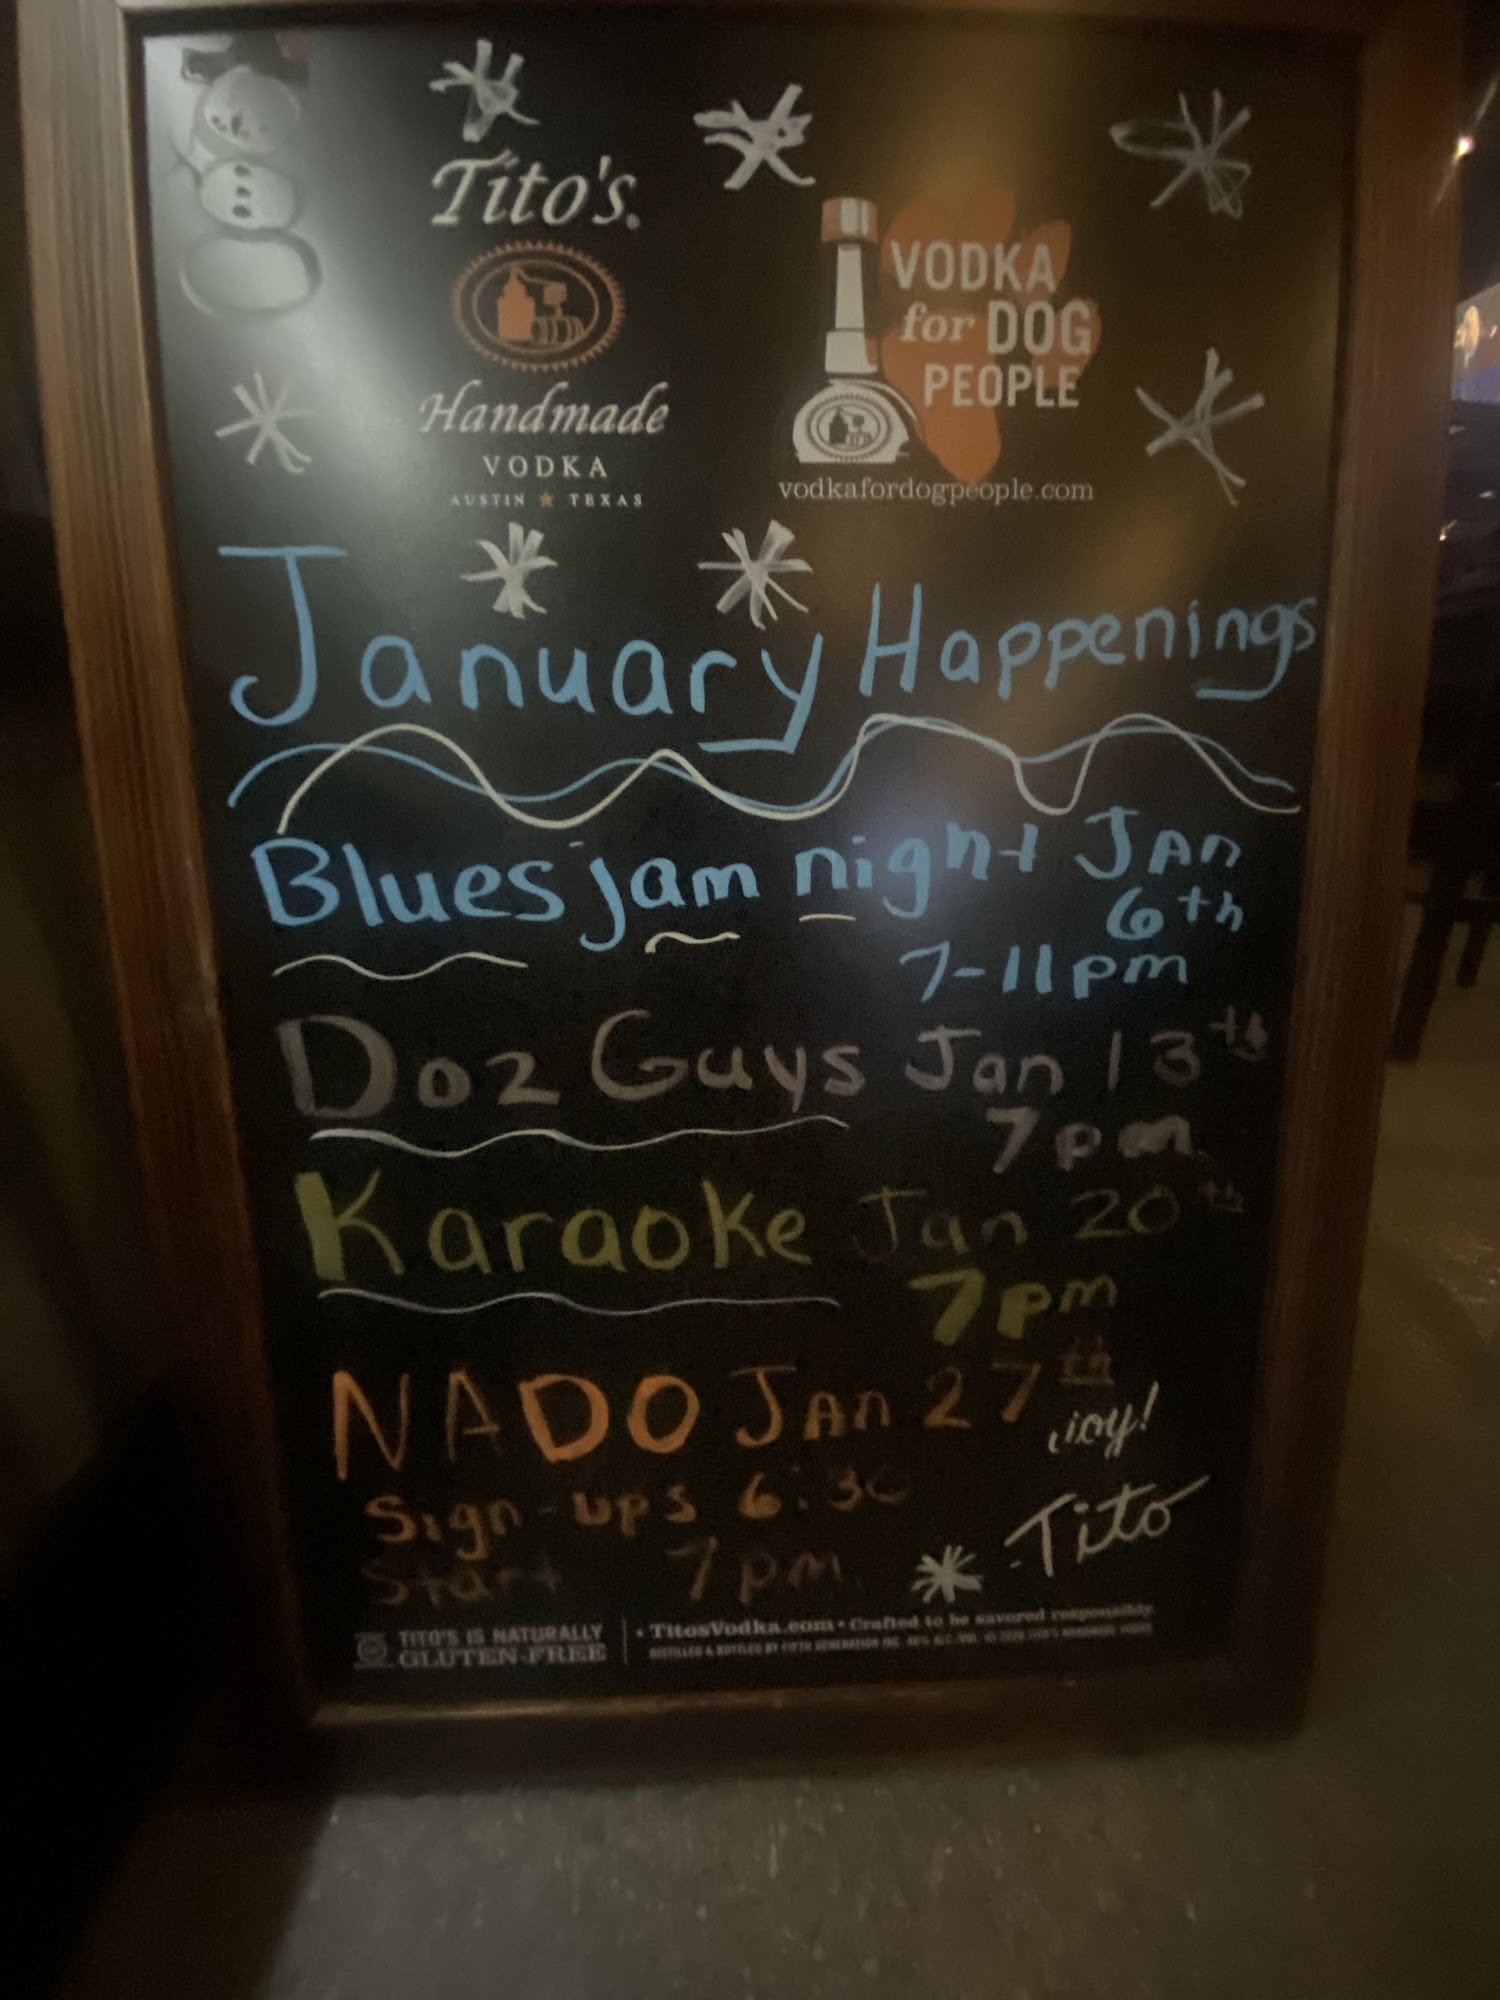 Tito's
Handmade
VODKA
AUSTIN ★ TEXAS
VODKA
for DOG
PEOPLE
vodkafordogpeople.com
January Happenings
Blues jam night JAN
6th
7-11pm
Doz Guys Jan 13th
7pm
Karaoke Jan 20th
7pm
NADO JAN 27th
Sign-ups 6:30
Start 7pm
-Tito
TITO'S IS NATURALLY
GLUTEN-FREE
• TitosVodka.com • Crafted to be savored responsibly.
DISTILLED & BOTTLED BY FIFTH GENERATION INC. 40% ALC./VOL. TITO'S HANDMADE VODKA